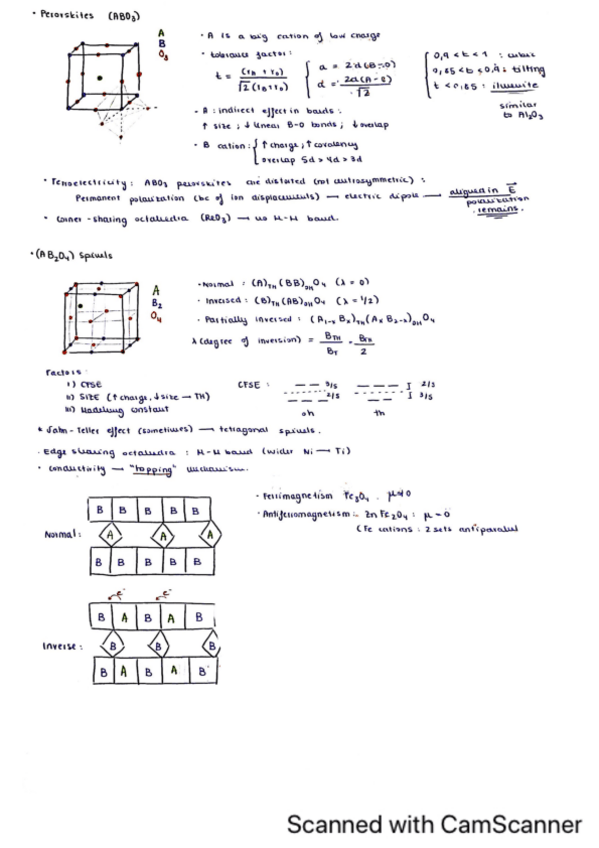 • Perovskites (ABO₃)
A
B
O₃
• A is a big cation of low charge
• tolerance factor:
t = (rB + rO) / √2 (rB + rO)
a = 2d(B-O)
d = 2a(A-B) / √2
0,9 < t < 1 : cubic
0,85 < t < 0,9 : tilting
t < 0,85 : ilmenite
similar to Al₂O₃
• A : indirect effect in bands :
↑ size ; ↓ linear B-O bonds ; ↓ overlap
• B cation : ↑ charge, ↑ covalency
overlap 5d > 4d > 3d
• Ferroelectricity : ABO₃ perovskites are distorted (not centrosymmetric) :
Permanent polarization (bc of ion displacements) → electric dipole → aligned in E
polarization remains.
• Corner-sharing octahedra (ReO₃) → no M-M band.
• (AB₂O₄) Spinels
A
B₂
O₄
• Normal : (A)TH (BB)OH O₄ (λ = 0)
• Inversed : (B)TH (AB)OH O₄ (λ = 1/2)
• Partially inversed : (A₁₋ₓ Bₓ)TH (Aₓ B₂₋ₓ)OH O₄
λ (degree of inversion) = BTH / BT
Factors :
i) CFSE
ii) SIZE (↑ charge, ↓ size → TH)
iii) Madelung constant
CFSE :
3/5
2/5
oh
2/5
3/5
th
* Jahn-Teller effect (sometimes) → tetragonal spinels.
• Edge sharing octahedra : M-M band (wider Ni → Ti)
• Conductivity → "hopping" mechanism.
• Ferrimagnetism Fe₃O₄ . μ≠0
• Antiferromagnetism : ZnFe₂O₄ : μ = 0
(Fe cations : 2 sets antiparallel
B B B B B
Normal : A A A
B B B B B
e⁻ e⁻
B A B A B
Inverse : B B B
B A B A B
Scanned with CamScanner